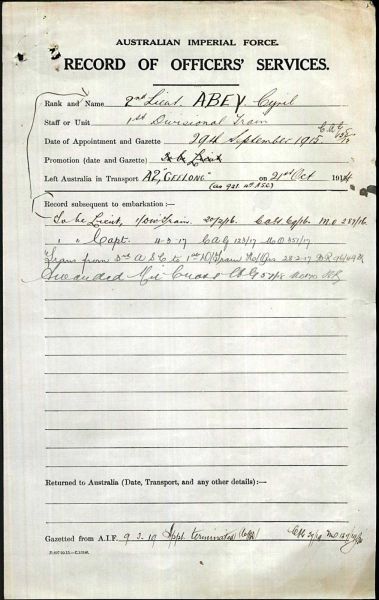 AUSTRALIAN IMPERIAL FORCE.
RECORD OF OFFICERS' SERVICES.
Rank and Name 2nd Lieut. ABEY Cyril
Staff or Unit 1st Divisional Train
Date of Appointment and Gazette 29th September 1915
Promotion (date and Gazette) To be Lieut
Left Australia in Transport A2, "GEELONG" on 21st Oct 1914
(as 921. ASC)
Record subsequent to embarkation:—
To be Lieut, 1/Div Train. 20/2/16. M.O 287/16
" " Capt. 11-3-17 CAG 123/17 M.O 351/17
Trans from 3rd A S C to 1st Div Train 28 2 17
Awarded
Returned to Australia (Date, Transport, and any other details):—
Gazetted from A.I.F. 9 3 19 Appt. terminated